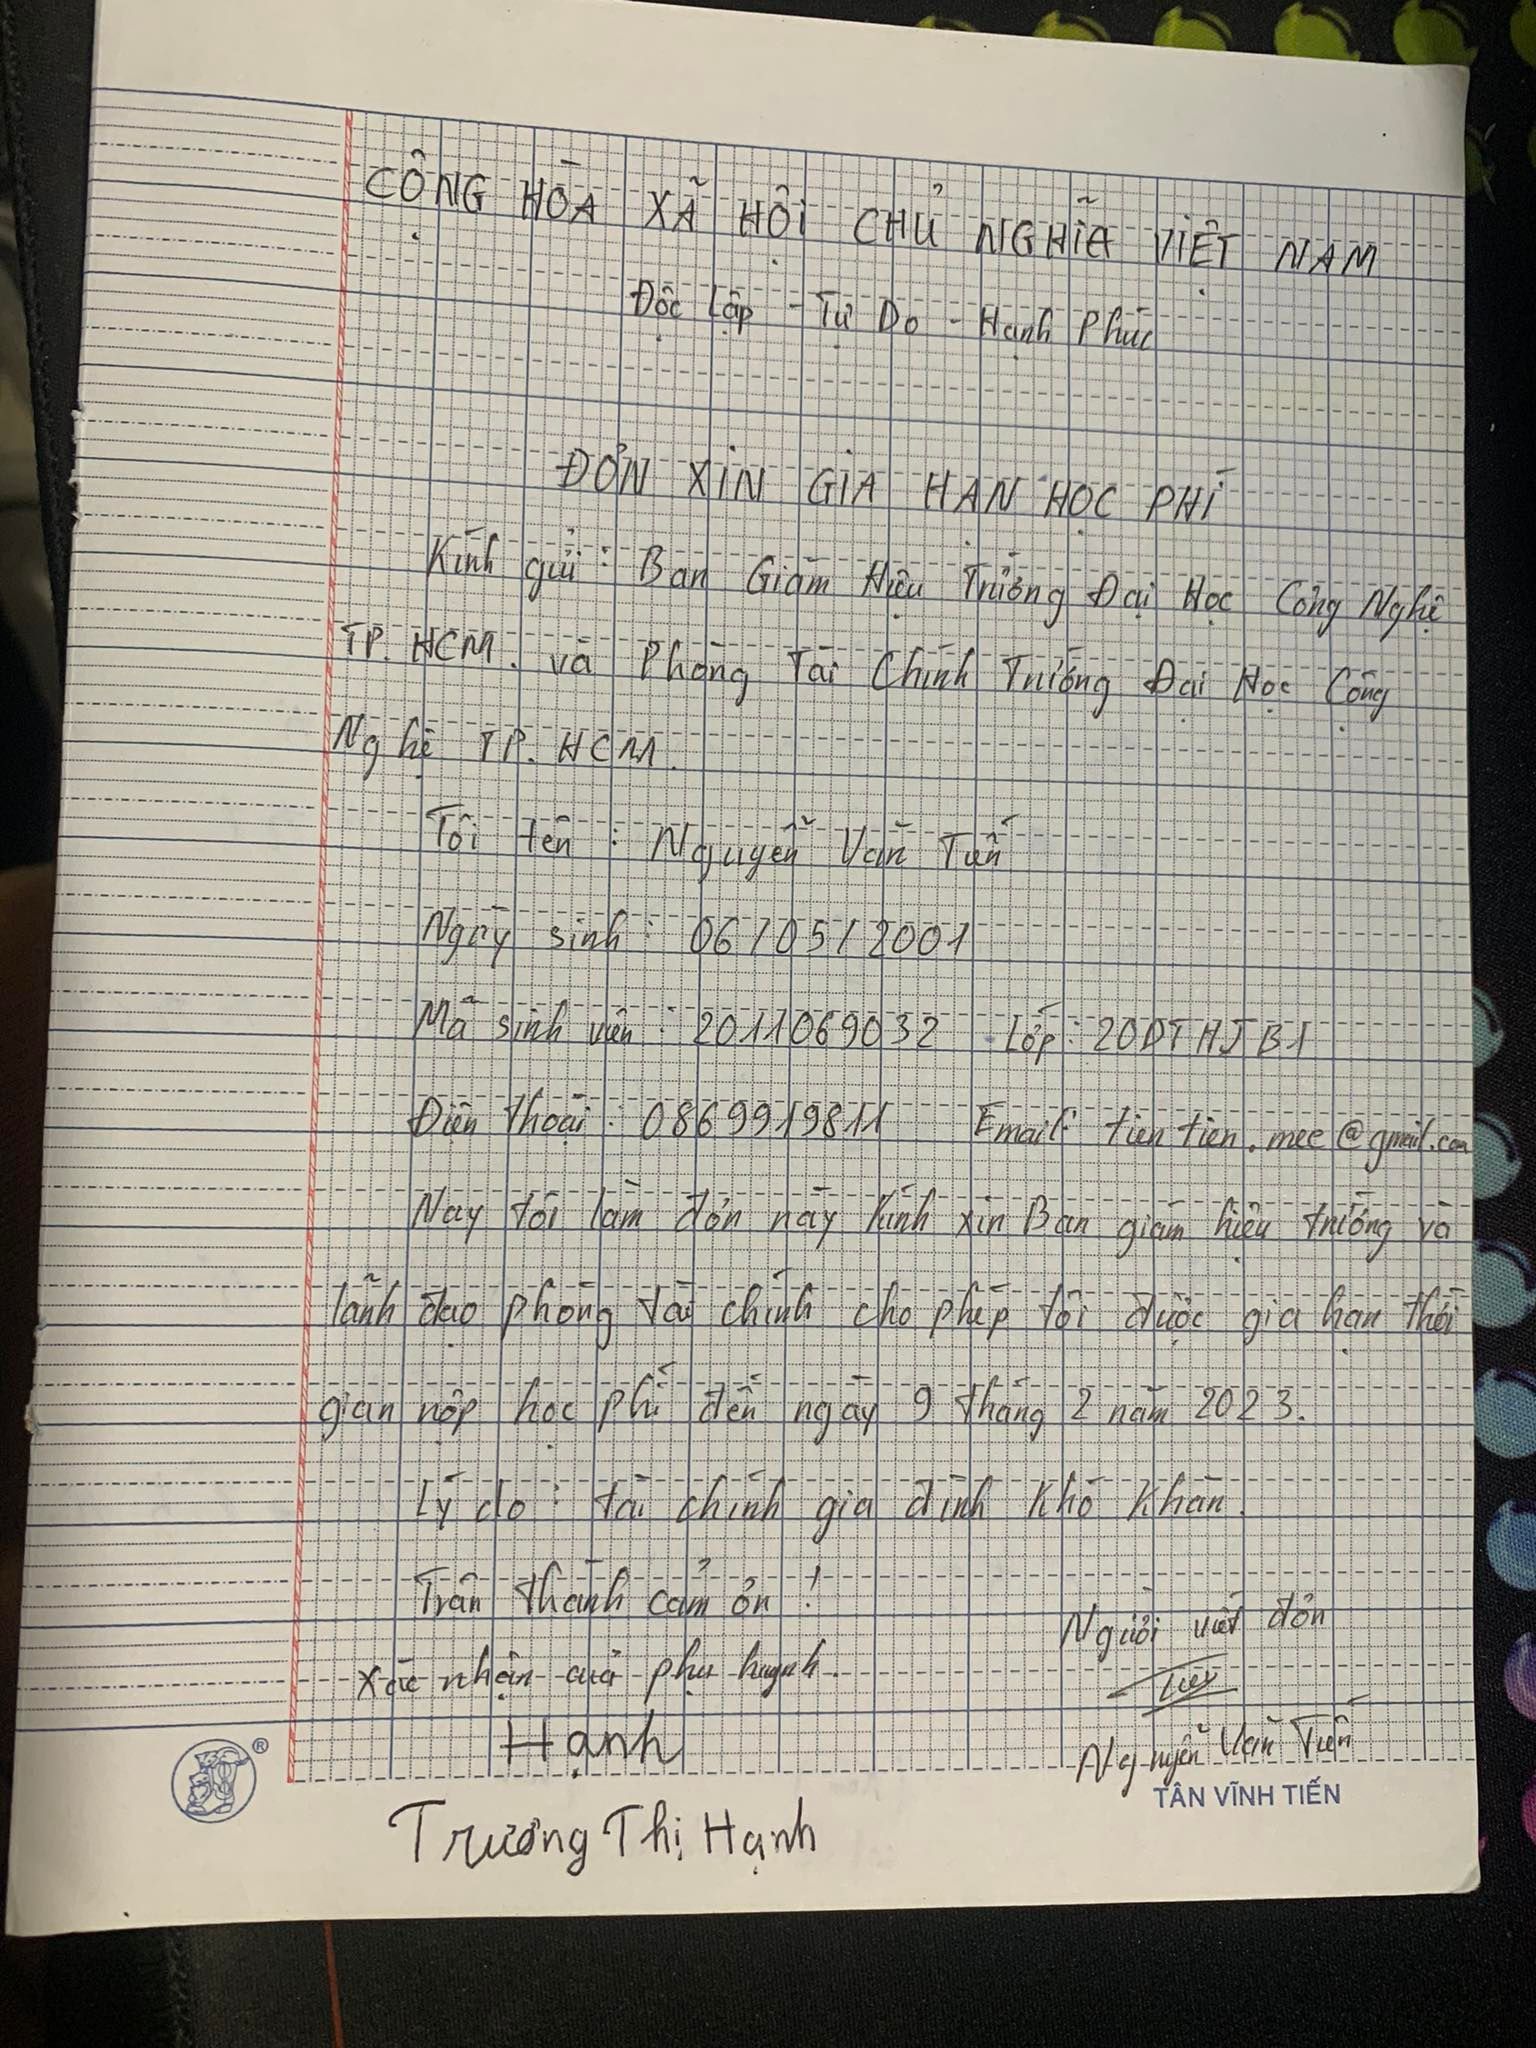 CỘNG HÒA XÃ HỘI CHỦ NGHĨA VIỆT NAM
Độc Lập - Tự Do - Hạnh Phúc
ĐƠN XIN GIA HẠN HỌC PHÍ
Kính gửi: Ban Giám Hiệu Trường Đại Học Công Nghệ
TP. HCM. và Phòng Tài Chính Trường Đại Học Công
Nghệ TP. HCM.
Tôi tên : Nguyễn Văn
Ngày sinh : 06/05/2001
Mã sinh viên : 2011069032 Lớp : 20DTHJB1
Điện thoại : 0869919811 Email: tientien.mee@gmail.com
Nay tôi làm đơn này kính xin Ban giám hiệu trường và
lãnh đạo phòng tài chính cho phép tôi được gia hạn thời
gian nộp học phí đến ngày 9 tháng 2 năm 2023.
Lý do : tài chính gia đình khó khăn.
Trân thành cảm ơn !
Người viết đơn
Xác nhận của phụ huynh.
Hạnh
Nguyễn Văn
TÂN VĨNH TIẾN
Trương Thị Hạnh
®